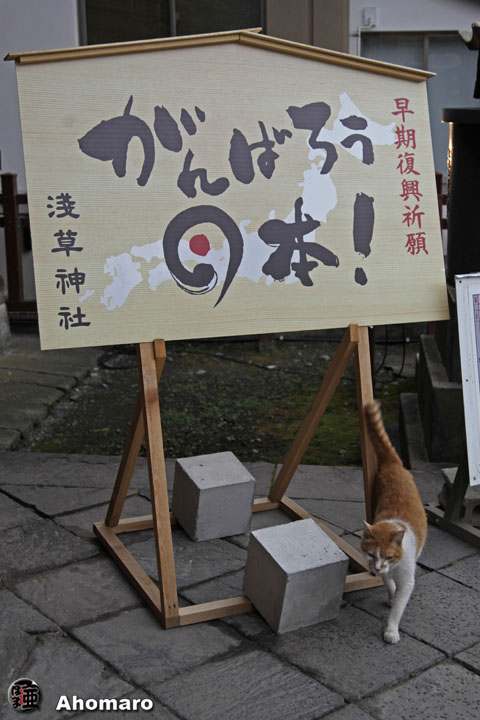 早期復興祈願
がんばろう
日本！
淺草神社
Ahomaro